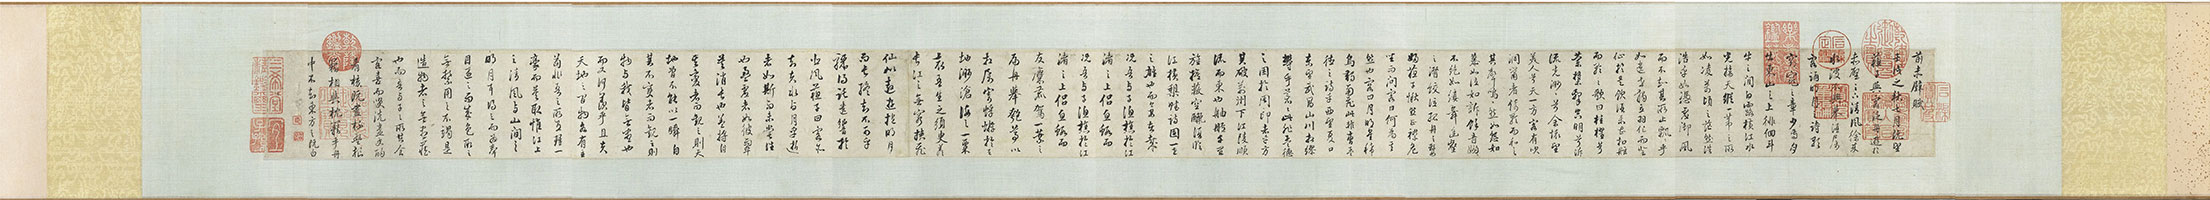 前赤壁賦
壬戌之秋七月既望
蘇子與客泛舟遊於
赤壁之下清風徐來
水波不興舉酒屬
客誦明月之詩歌
窈窕之章少焉月
出東山之上徘徊斗
牛之間白露橫江水
光接天縱一葦之所
如凌萬頃之茫然浩
浩乎如馮虛御風
而不知其所止飄乎
如遺世獨立羽化而登
仙於是飲酒樂甚扣舷
而歌之歌曰桂棹兮
蘭槳擊空明兮泝
流光渺渺兮余懷望
美人兮天一方客有吹
洞簫者倚歌而和之
其聲嗚嗚然如怨如
慕如泣如訴餘音嫋嫋
不絕如縷舞幽壑
之潛蛟泣孤舟之嫠
婦蘇子愀然正襟危
坐而問客曰何為其
然也客曰月明星稀
烏鵲南飛此非曹孟
德之詩乎西望夏口
東望武昌山川相繆
鬱乎蒼蒼此非孟德
之困於周郎者乎方
其破荊州下江陵順
流而東也舳艫千里
旌旗蔽空釃酒臨
江橫槊賦詩固一世
之雄也而今安在哉
況吾與子漁樵於江
渚之上侶魚蝦而
況吾與子漁樵於江
渚之上侶魚蝦而
友麋鹿駕一葉之
扁舟舉匏尊以
相屬寄蜉蝣於天
地渺滄海之一粟
哀吾生之須臾羨
長江之無窮挾飛
仙以遨遊抱明月
而長終知不可乎
驟得託遺響於
悲風蘇子曰客亦
知夫水與月乎逝
者如斯而未嘗往
也盈虛者如彼而卒
莫消長也蓋將自
其變者而觀之則天
地曾不能以一瞬自
其不變者而觀之則
物與我皆無盡也
而又何羨乎且夫
天地之間物各有主
苟非吾之所有雖一
毫而莫取惟江上
之清風與山間之
明月耳得之而為聲
目遇之而成色取之
無禁用之不竭是
造物者之無盡藏
也而吾與子之所共食
客喜而笑洗盞更酌
肴核既盡杯盤狼
籍相與枕藉乎舟
中不知東方之既白